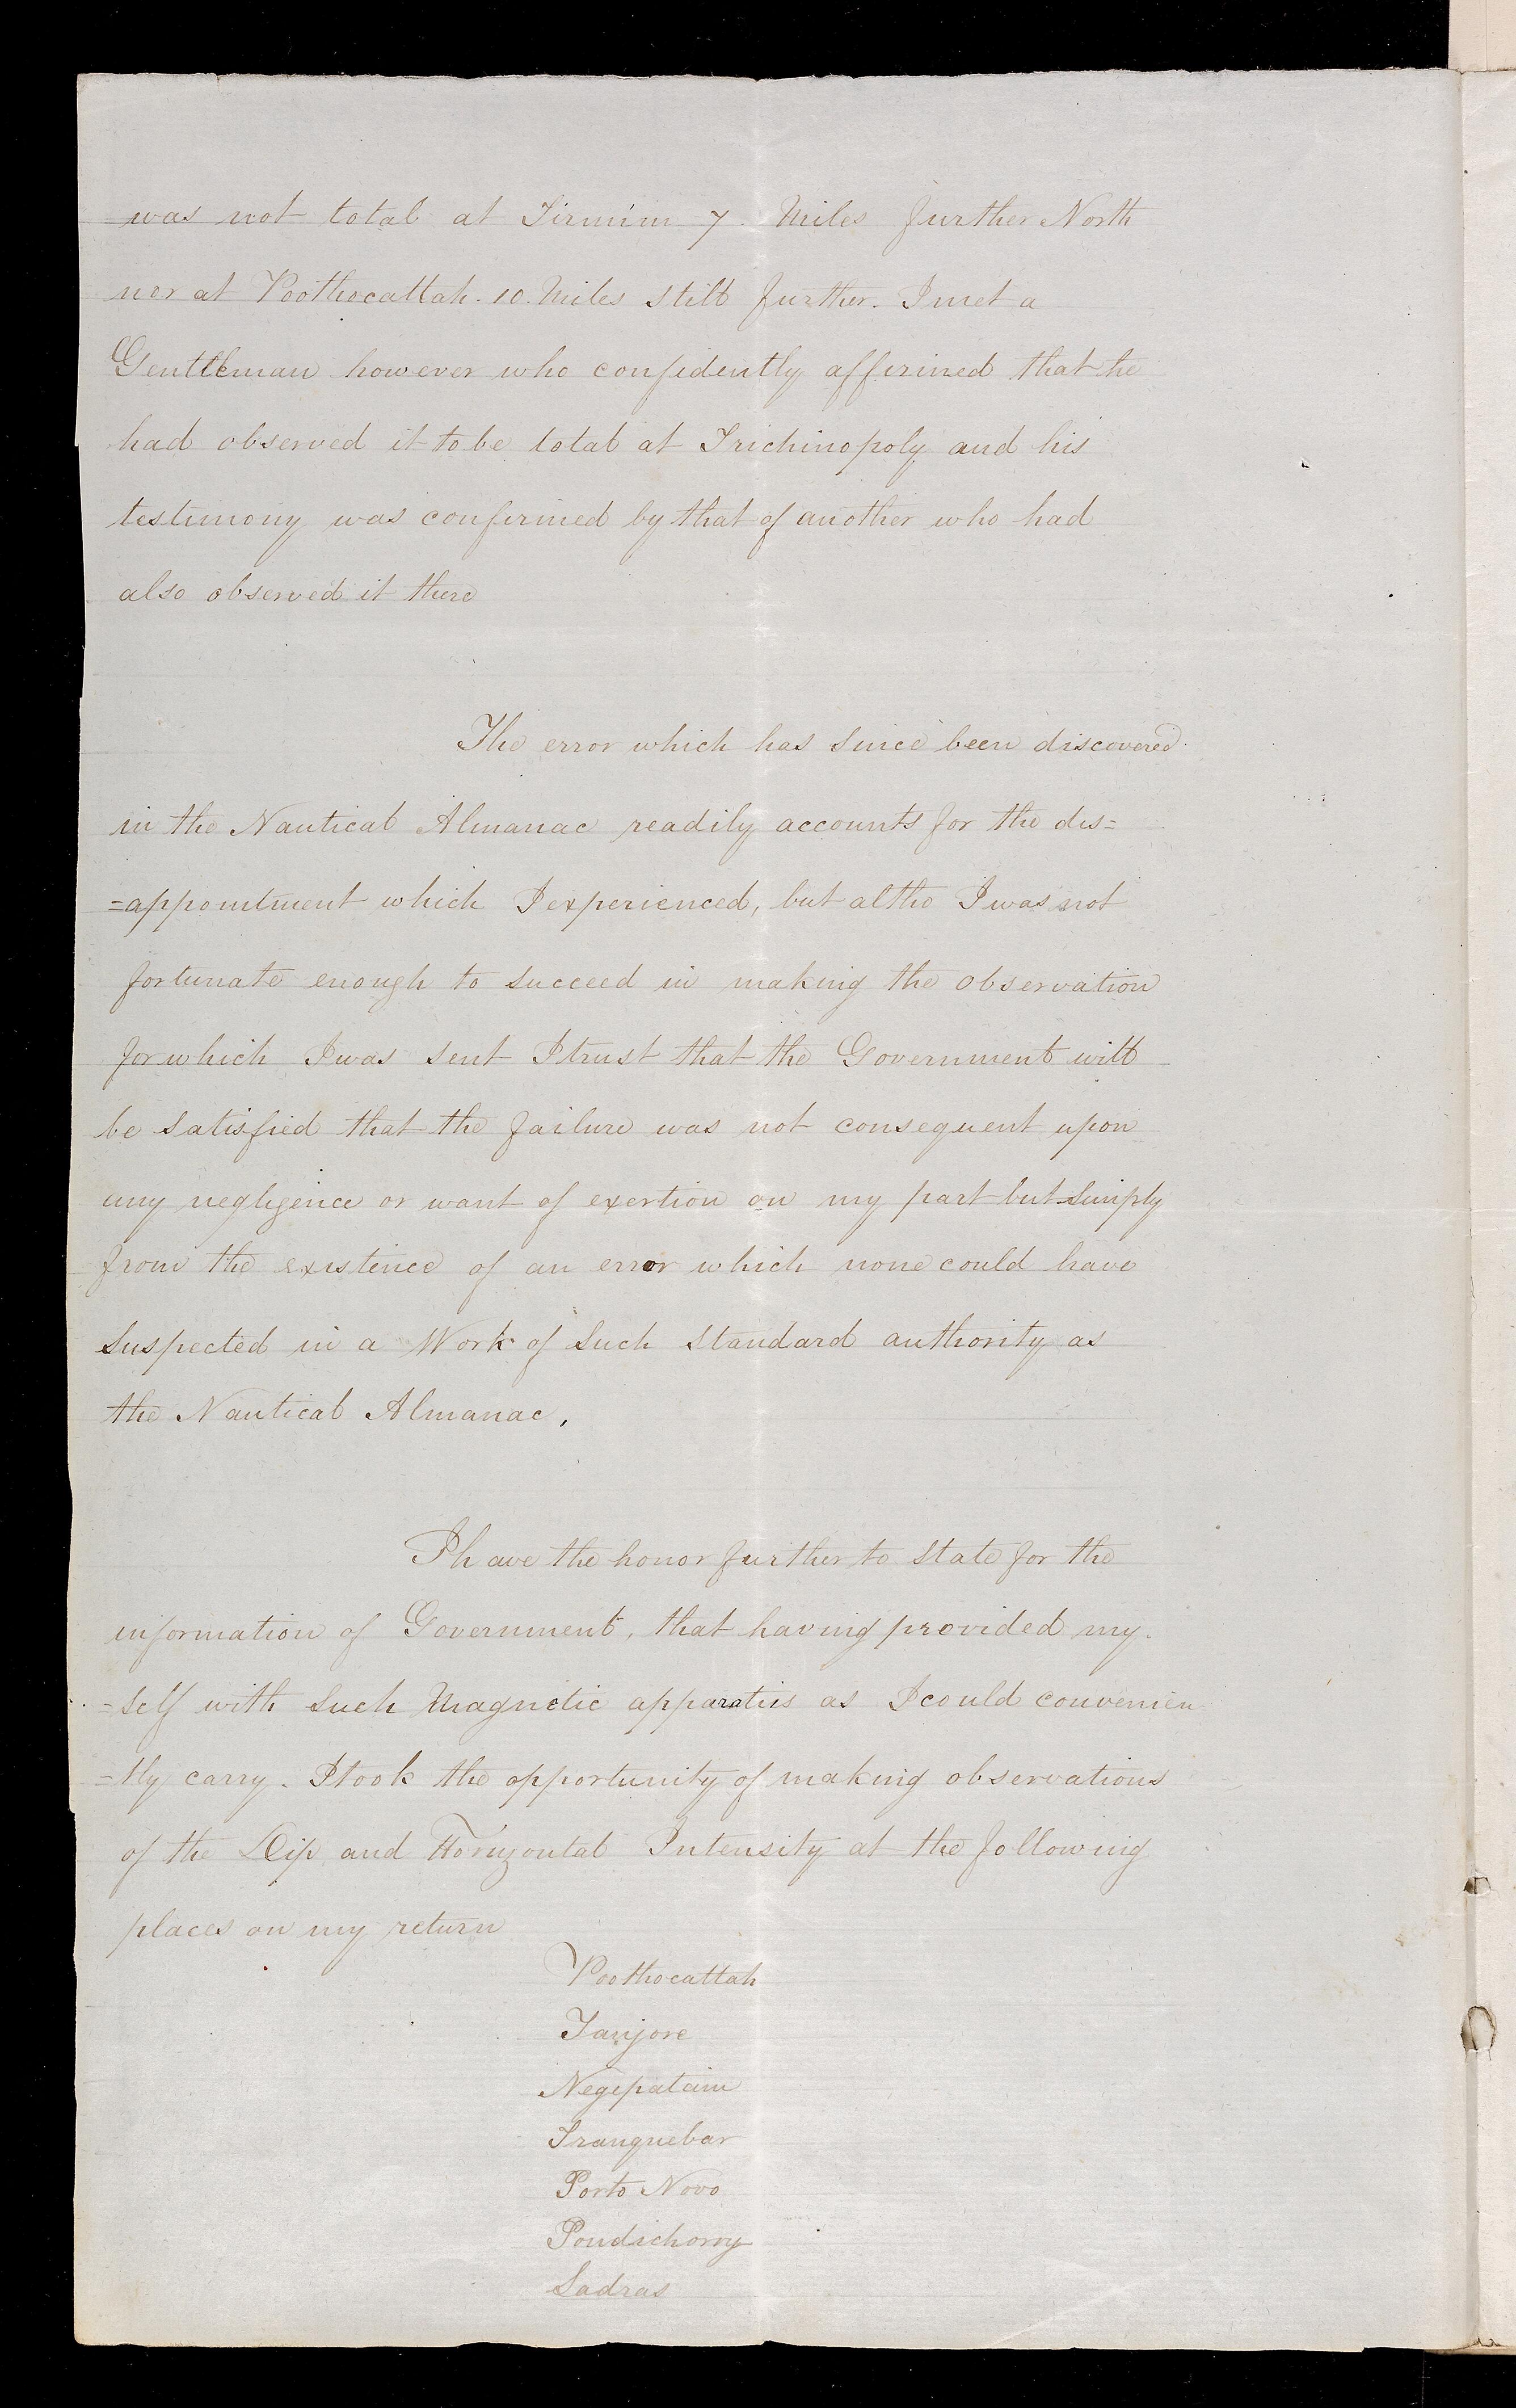 was not total at Tirmim 7. Miles further North
nor at Poothocattah. 10. Miles still further. I met a
Gentleman however who confidently affirmed that he
had observed it to be total at Trichinopoly and his
testimony was confirmed by that of another who had
also observed it there
The error which has since been discovered
in the Nautical Almanac readily accounts for the dis=
=appointment which I experienced, but altho I was not
fortunate enough to succeed in making the observation
for which I was sent I trust that the Government will
be satisfied that the failure was not consequent upon
any negligence or want of exertion on my part but simply
from the existence of an error which none could have
suspected in a Work of such standard authority as
the Nautical Almanac,
I have the honor further to state for the
information of Government, that having provided my.
=self with such Magnetic apparatus as I could convenien
=tly carry. I took the opportunity of making observations
of the Dip and Horizontal Intensity at the following
places on my return
Poothocattah
Tanjore
Negepatam
Tranquebar
Porto Novo
Pondicherry
Sadras